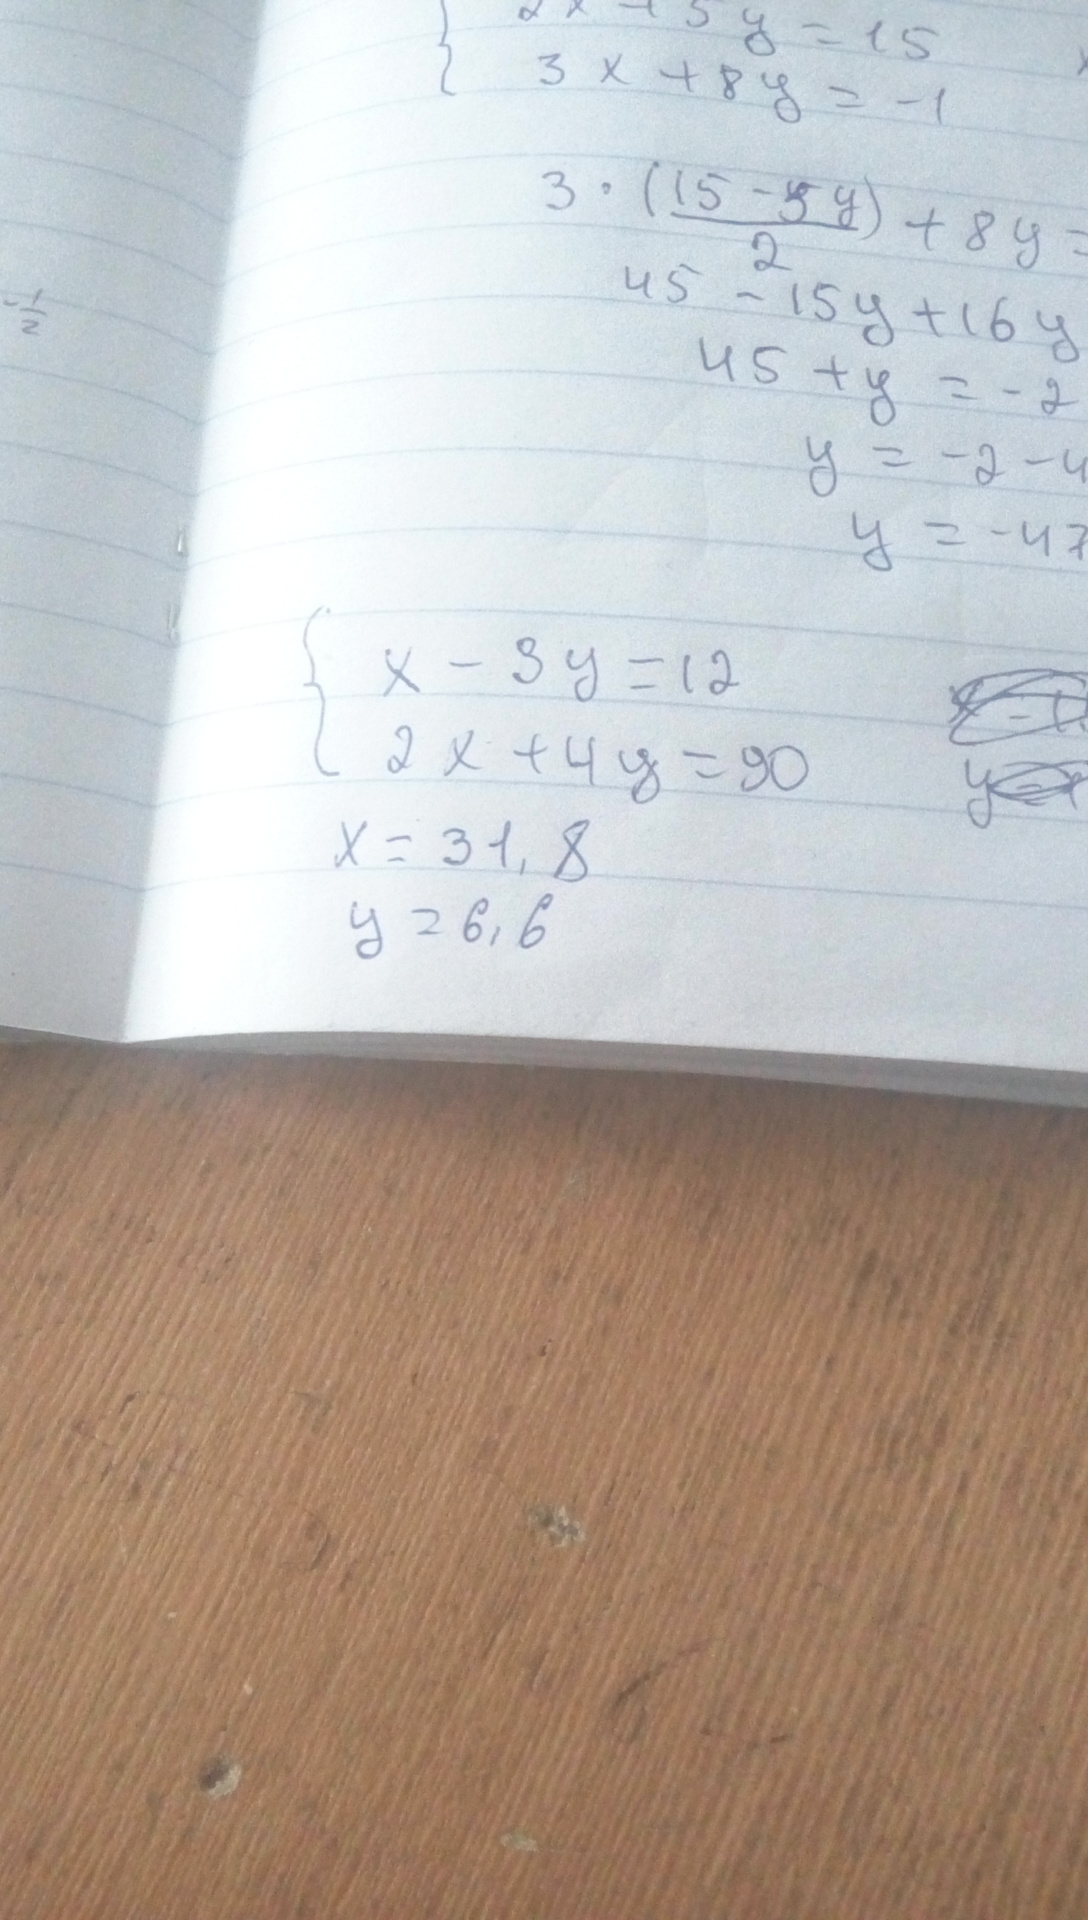 2x + 5y = 15
3x + 8y = -1
3 · (15 - 5y)/2 + 8y =
45 - 15y + 16y
45 + y = -2
y = -2 - 4
y = -47
-1/2
{ x - 3y = 12
2x + 4y = 90
x = 31,8
y = 6,6